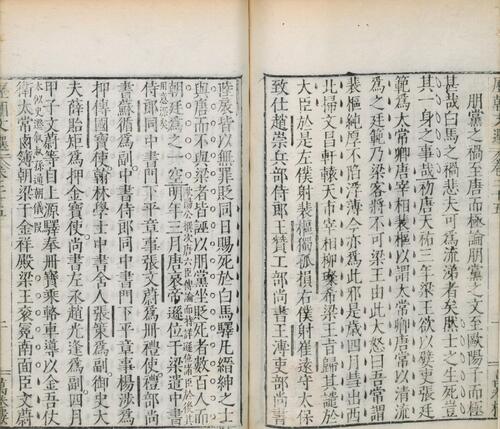 朋黨之禍至唐而極論朋黨至歐陽子而極
甚哉白馬之禍悲夫可爲流涕者矣然士之生死豈
其一身之事哉初唐天祐三年梁王欲以嬖吏張廷
範爲太常卿唐宰相裴樞以謂太常卿唐常以清流
爲之廷範乃梁客將不可梁王由此大怒曰吾常謂
裴樞純厚不陷浮薄今亦爲此邪是歲四月彗出西
北掃文昌軒轅天市宰相柳璨希梁王旨歸其譴於
大臣於是左僕射裴樞獨孤損右僕射崔遠守太保
致仕趙崇兵部侍郎王贊工部尚書王溥吏部尚書
陸扆皆以無罪貶同日賜死於白馬驛凡縉紳之士
與唐而不與梁者皆誣以朋黨坐貶死者數百人而
歐陽公撰次唐六臣傳論而特詳遜位諸臣於後其
用意深矣
朝廷爲之一空明年三月唐哀帝遜位于梁遣中書
侍郎同中書門下平章事張文蔚爲冊禮使禮部尚
書蘇循爲副中書侍郎同中書門下平章事楊涉爲
押傳國寶使翰林學士中書舍人張策爲副御史大
夫薛貽矩爲押金寶使尚書左丞趙光逢爲副四月
甲子文蔚等自上源驛奉冊寶乘輅車導以金吾仗
衛太常鹵簿朝梁于金祥殿梁王袞冕南面臣文蔚
二